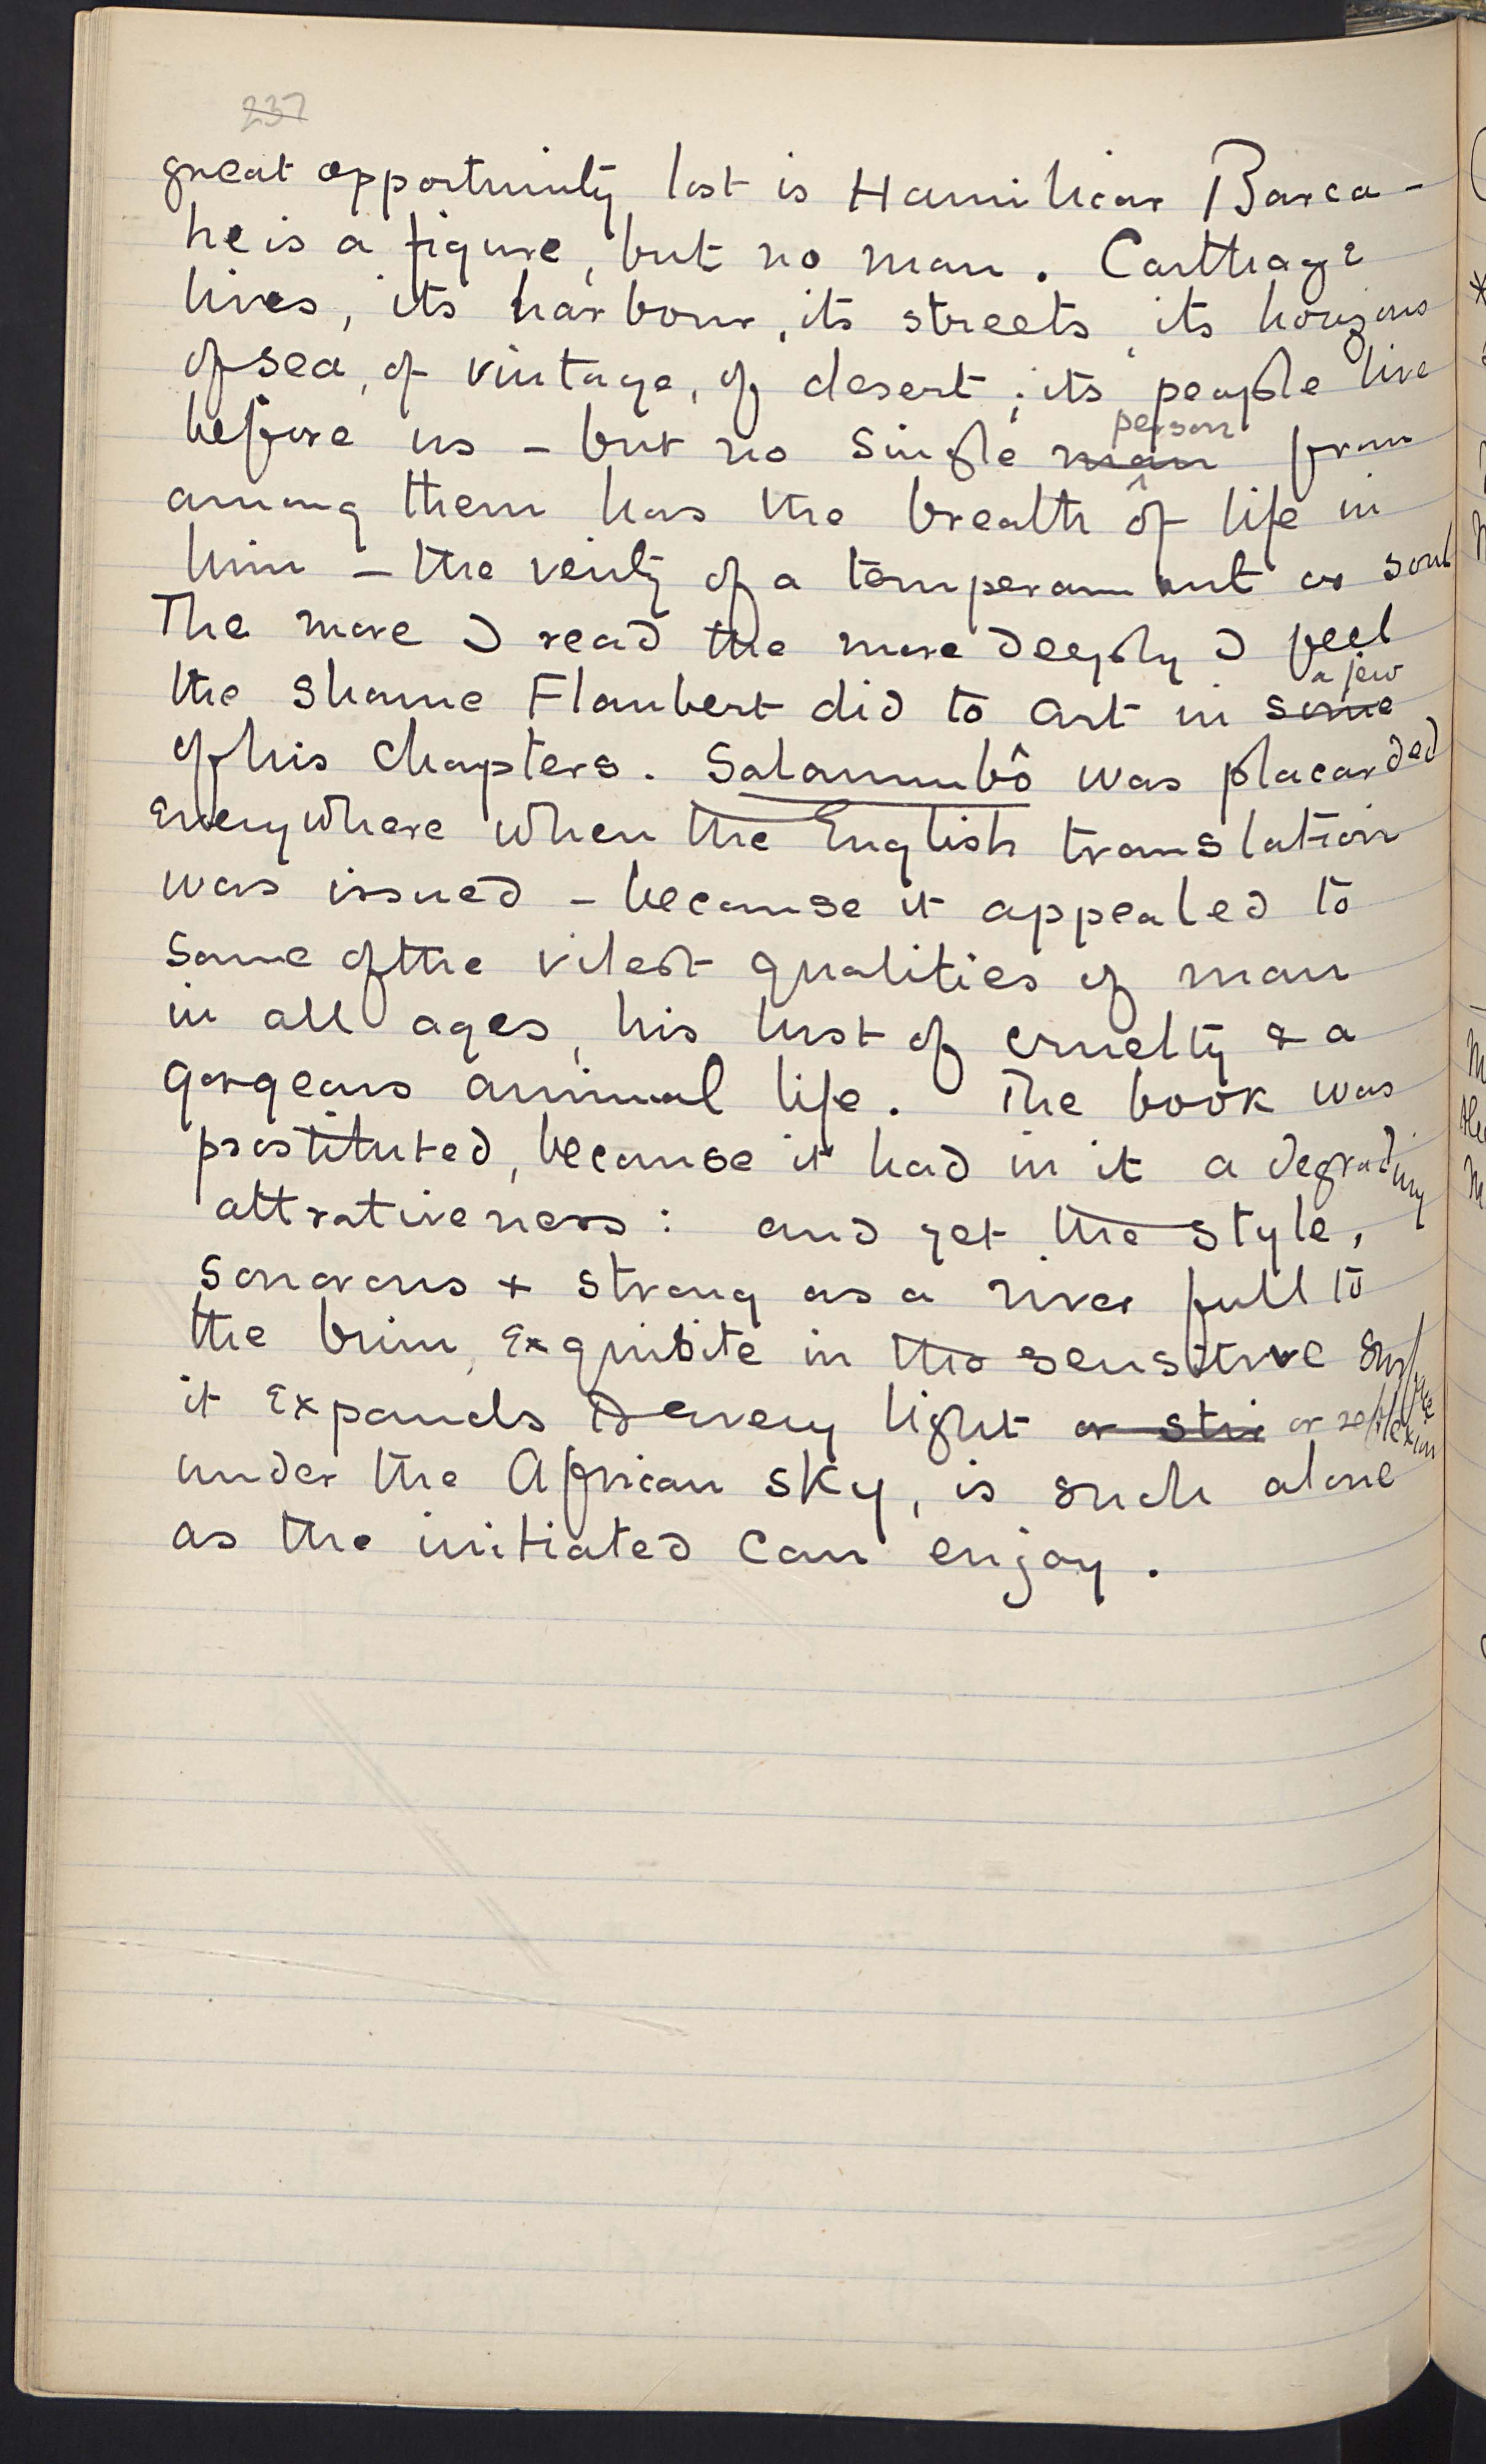 237
great opportunity lost is Hamilcar Barca -
he is a figure, but no man. Carthage
lives, its harbour, its streets, its horizons
of sea, of vintage, of desert; its people live
before us - but no single man person from
among them has the breath of life in
him - the verity of a temperament or soul
The more I read the more deeply I feel
the shame Flaubert did to art in some a few
of his chapters. Salammbô was placarded
everywhere when the English translation
was issued - because it appealed to
some of the vilest qualities of man
in all ages, his lust of cruelty & a
gorgeous animal life. The book was
prostituted, because it had in it a degrading
attrativeness: and yet the style,
sonorous & strong as a river full to
the brim, exquisite in the sensitive surface
it expands to every light or stri or reflexion
under the African sky, is such alone
as the initiated can enjoy.